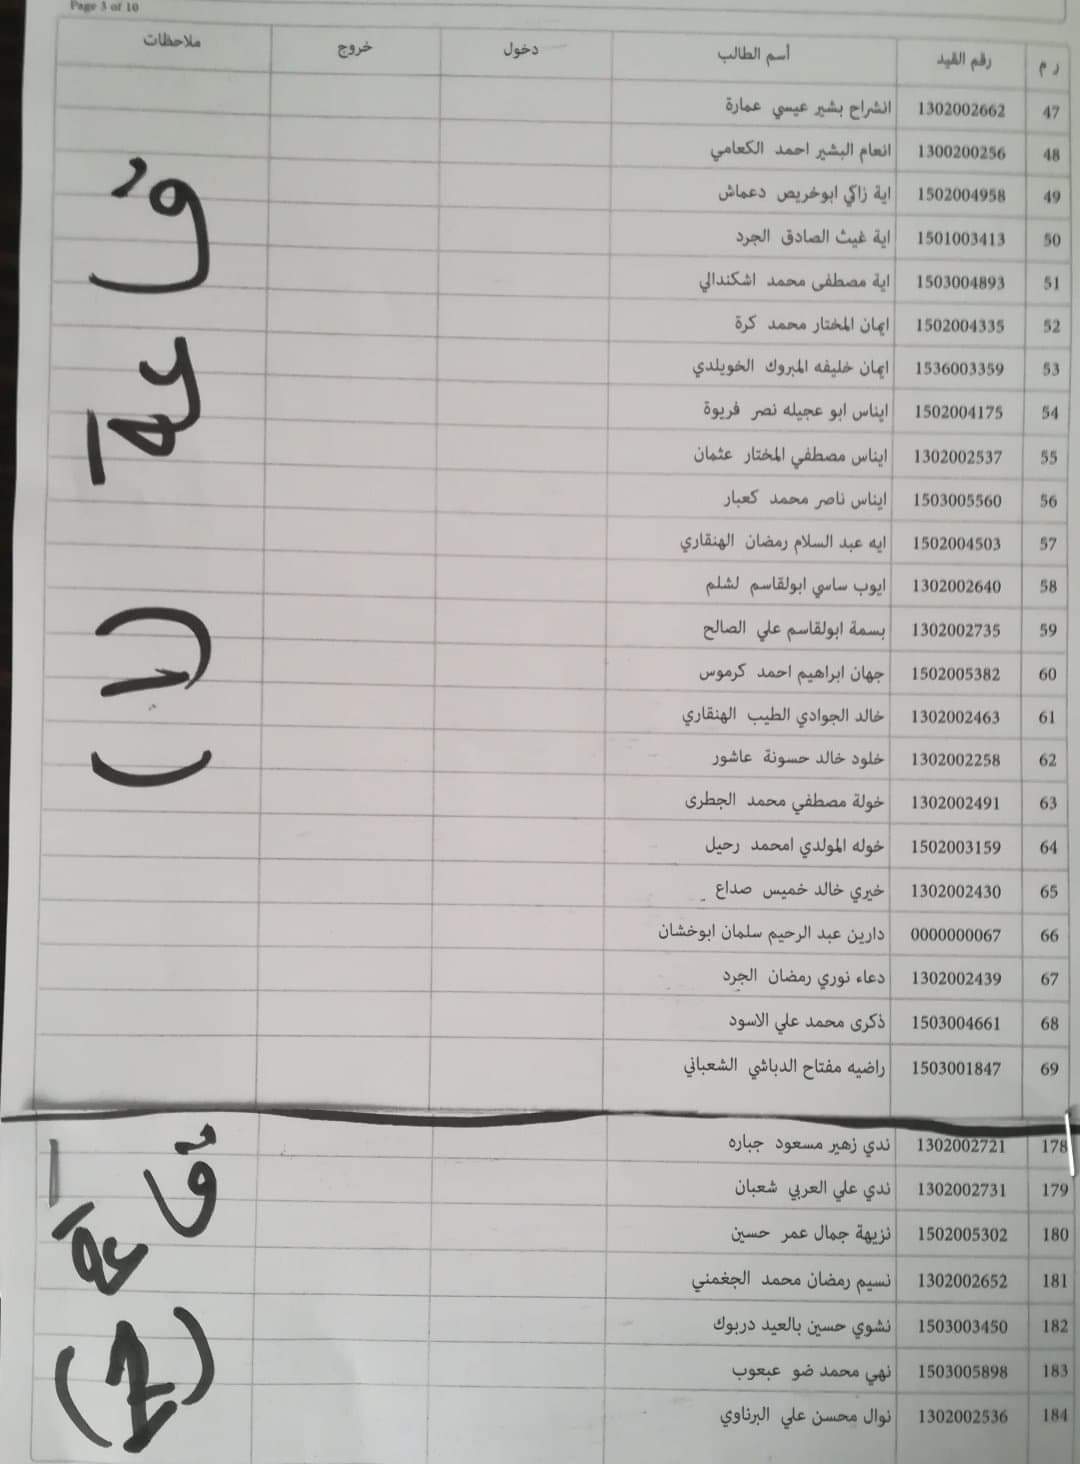 Page 3 of 10
ر م رقم القيد أسم الطالب دخول خروج ملاحظات
47 1302002662 انشراح بشير عيسي عمارة
48 1300200256 انعام البشير احمد الكعامي
49 1502004958 اية زاكي ابوخريص دعماش
50 1501003413 اية غيث الصادق الجرد
51 1503004893 اية مصطفى محمد اشكندالي
52 1502004335 ايمان المختار محمد كرة
53 1536003359 ايمان خليفه المبروك الخويلدي
54 1502004175 ايناس ابو عجيله نصر فريوة
55 1302002537 ايناس مصطفي المختار عثمان
56 1503005560 ايناس ناصر محمد كعبار
57 1502004503 ايه عبد السلام رمضان الهنقاري
58 1302002640 ايوب ساسي ابولقاسم لشلم
59 1302002735 بسمة ابولقاسم علي الصالح
60 1502005382 جهان ابراهيم احمد كرموس
61 1302002463 خالد الجوادي الطيب الهنقاري
62 1302002258 خلود خالد حسونة عاشور
63 1302002491 خولة مصطفي محمد الجطرى
64 1502003159 خوله المولدي امحمد رحيل
65 1302002430 خيري خالد خميس صداع
66 0000000067 دارين عبد الرحيم سلمان ابوخشان
67 1302002439 دعاء نوري رمضان الجرد
68 1503004661 ذكرى محمد علي الاسود
69 1503001847 راضيه مفتاح الدباشي الشعباني
178 1302002721 ندي زهير مسعود جباره
179 1302002731 ندي علي العربي شعبان
180 1502005302 نزيهة جمال عمر حسين
181 1302002652 نسيم رمضان محمد الجغمني
182 1503003450 نشوي حسين بالعيد دربوك
183 1503005898 نهي محمد ضو عبعوب
184 1302002536 نوال محسن علي البرناوي